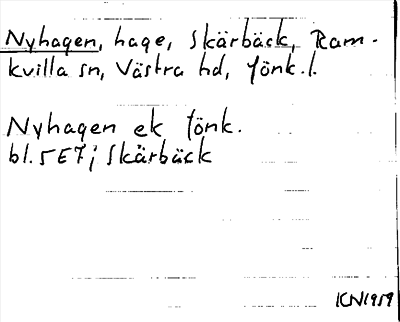 Nyhagen, hage, Skärbäck, Ram-
kvilla sn, Västra hd, Jönk.l.
Nyhagen ek Jönk.
bl. 5E7; Skärbäck
KN1959